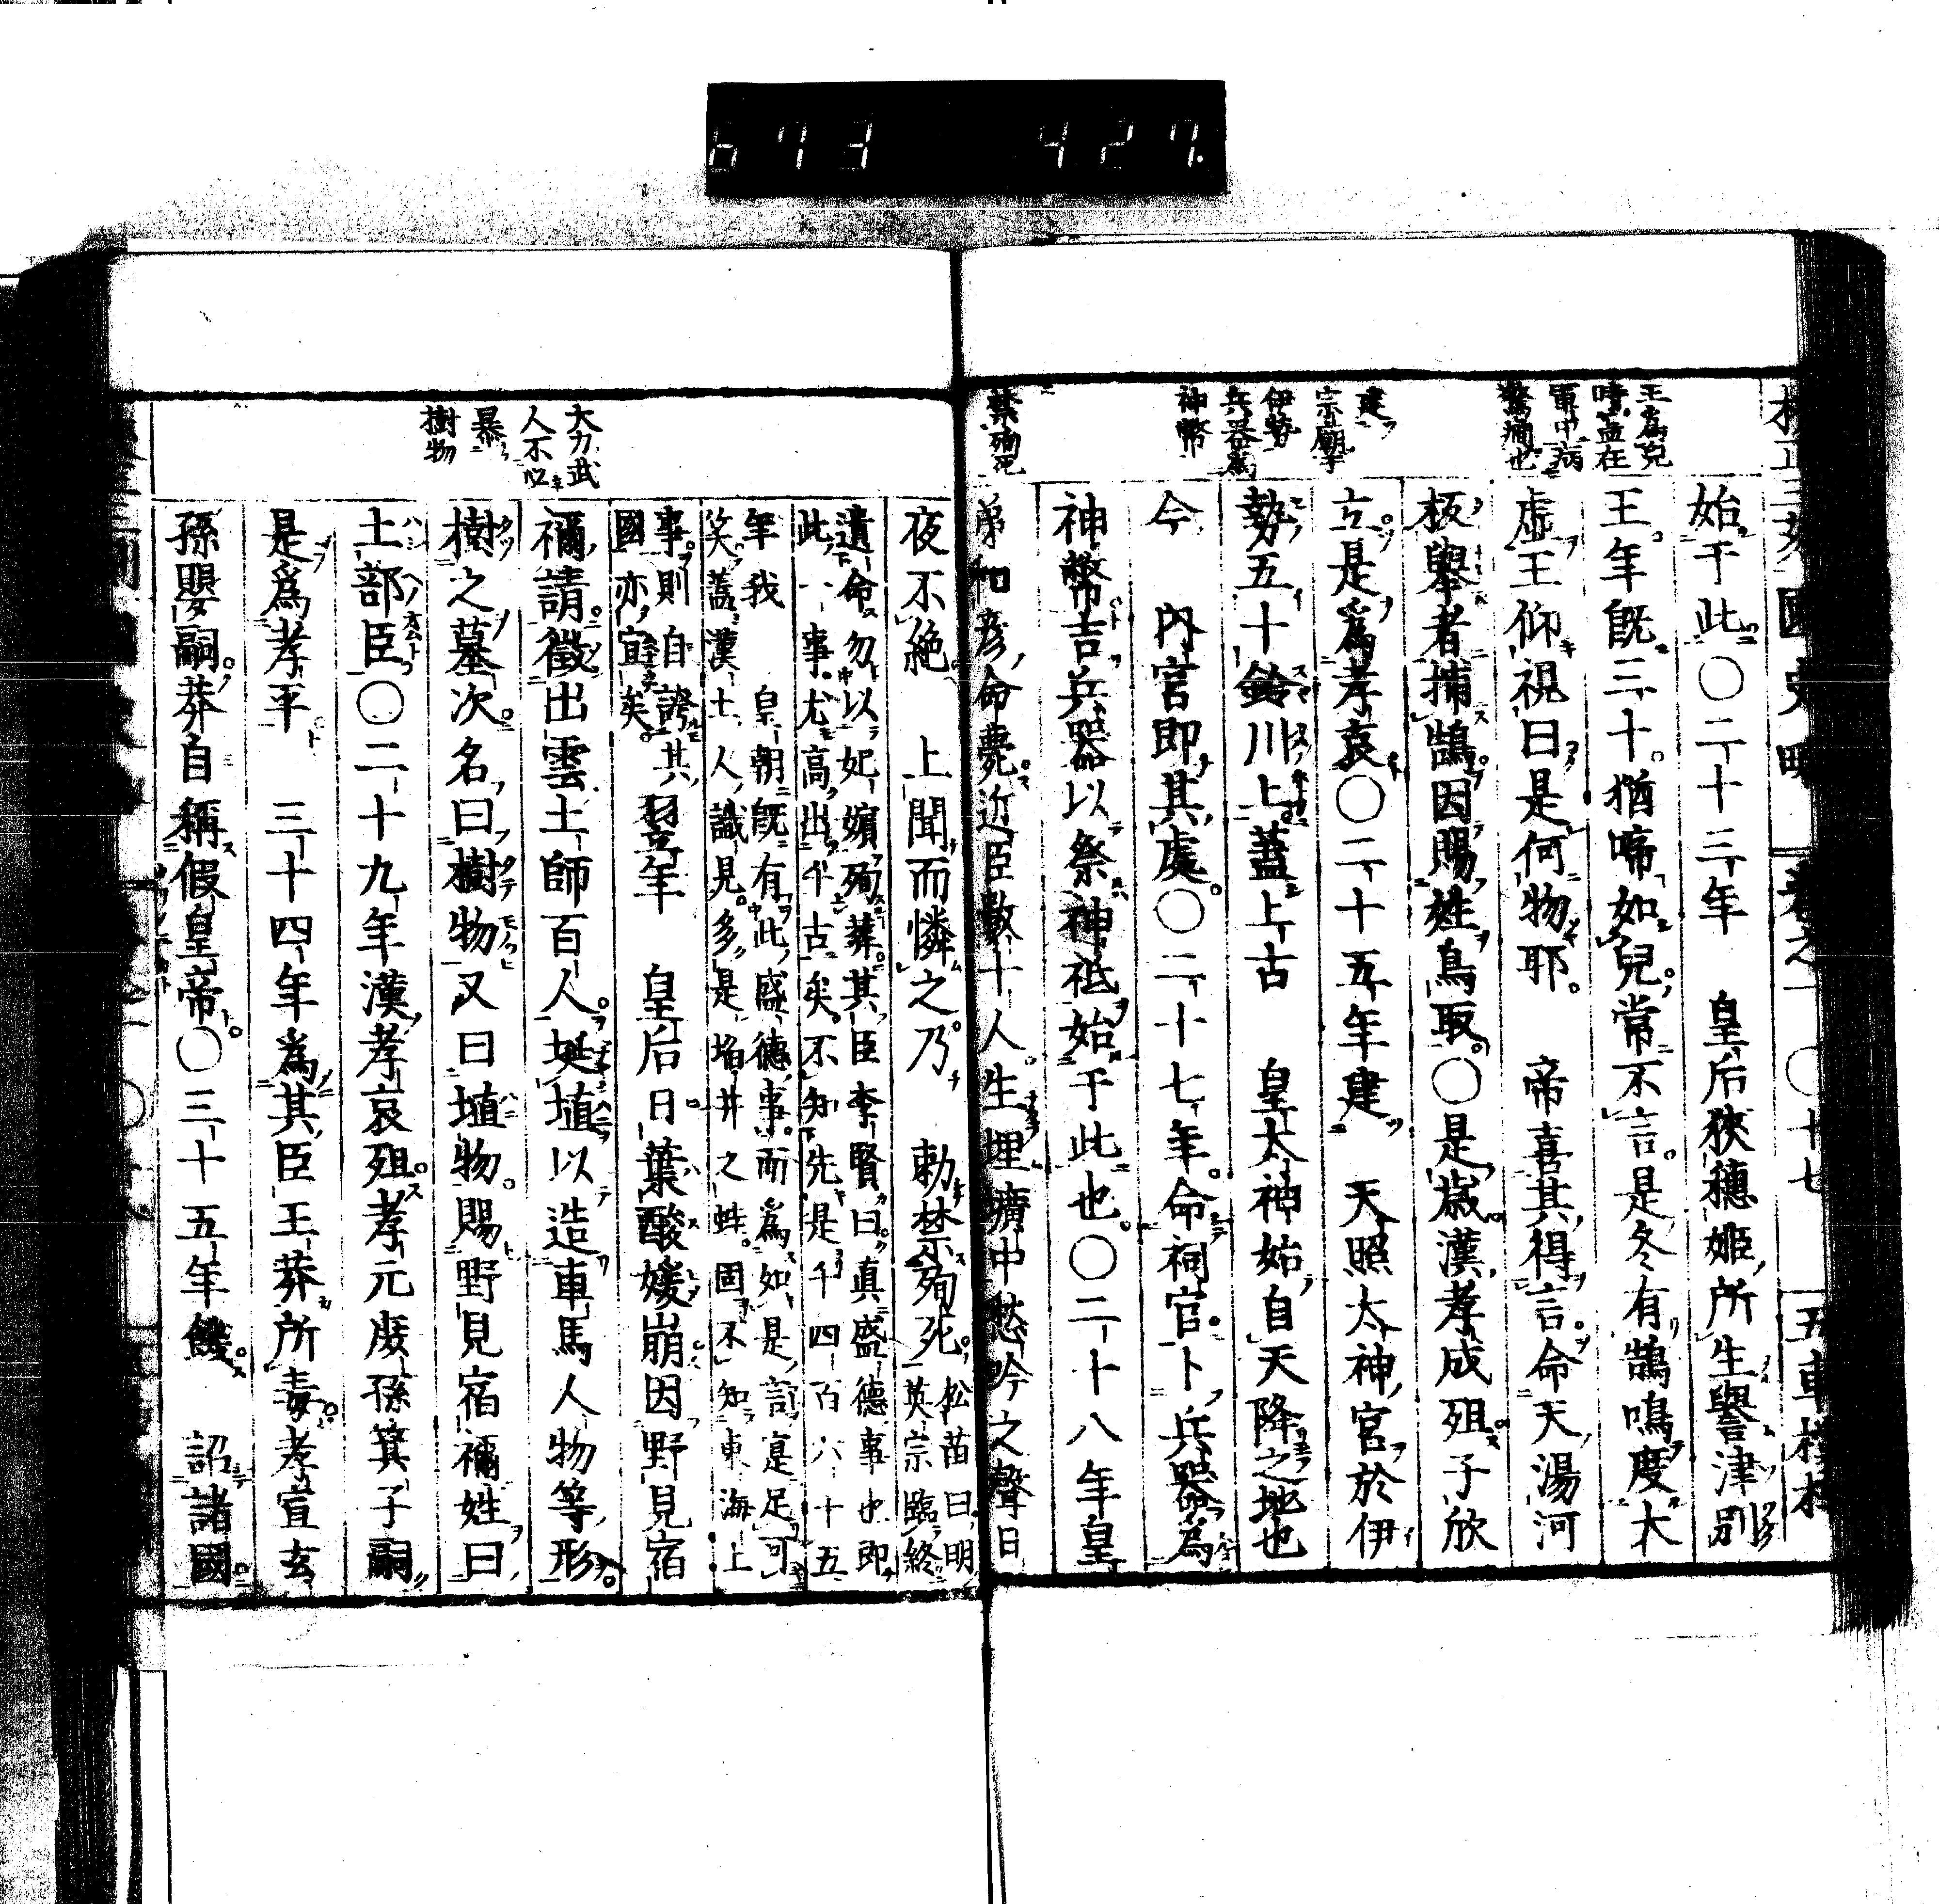 673 427
王爲兒
時曾在
軍中病
驚癇也
建
宗廟
伊勢
兵器爲
神幣
禁殉死
始于此○二十三年 皇后狹穗姬所生譽津別
王年既三十猶啼如兒常不言是冬有鵠鳴度大
虛王仰視曰是何物耶 帝喜其得言命天湯河
板擧者捕鵠因賜姓鳥取○是歲漢孝成殂子欣
立是爲孝哀○二十五年建 天照太神宮於伊
勢五十鈴川上蓋上古 皇太神始自天降之地也
今 內宮即其處○二十七年命祠官卜兵器爲
神幣吉兵器以祭神祇始于此也○二十八年皇
弟和彥命薨近臣數十人生埋壙中愁吟之聲日
大力武
人不以
暴
樹物
夜不絕 上聞而憐之乃 勅禁殉死松苗曰明英宗臨終
遺命勿以妃嬪殉葬其臣李賢曰眞盛德事也即
此一事尤高出千古矣不知先是千四百六十五
年我 皇朝既有此盛德事而爲如是言寔足可
笑蓋漢土人識見多是埳井之蛙固不知東海上
事則自誇其
國亦宜矣
翌年 皇后日葉酸媛崩因野見宿
禰請徵出雲土師百人埏埴以造車馬人物等形
樹之墓次名曰樹物又曰埴物賜野見宿禰姓曰
土部臣○二十九年漢孝哀殂孝元庶孫箕子嗣
是爲孝平 三十四年爲其臣王莽所毒孝宣玄
孫嬰嗣莽自稱假皇帝○三十五年饑 詔諸國